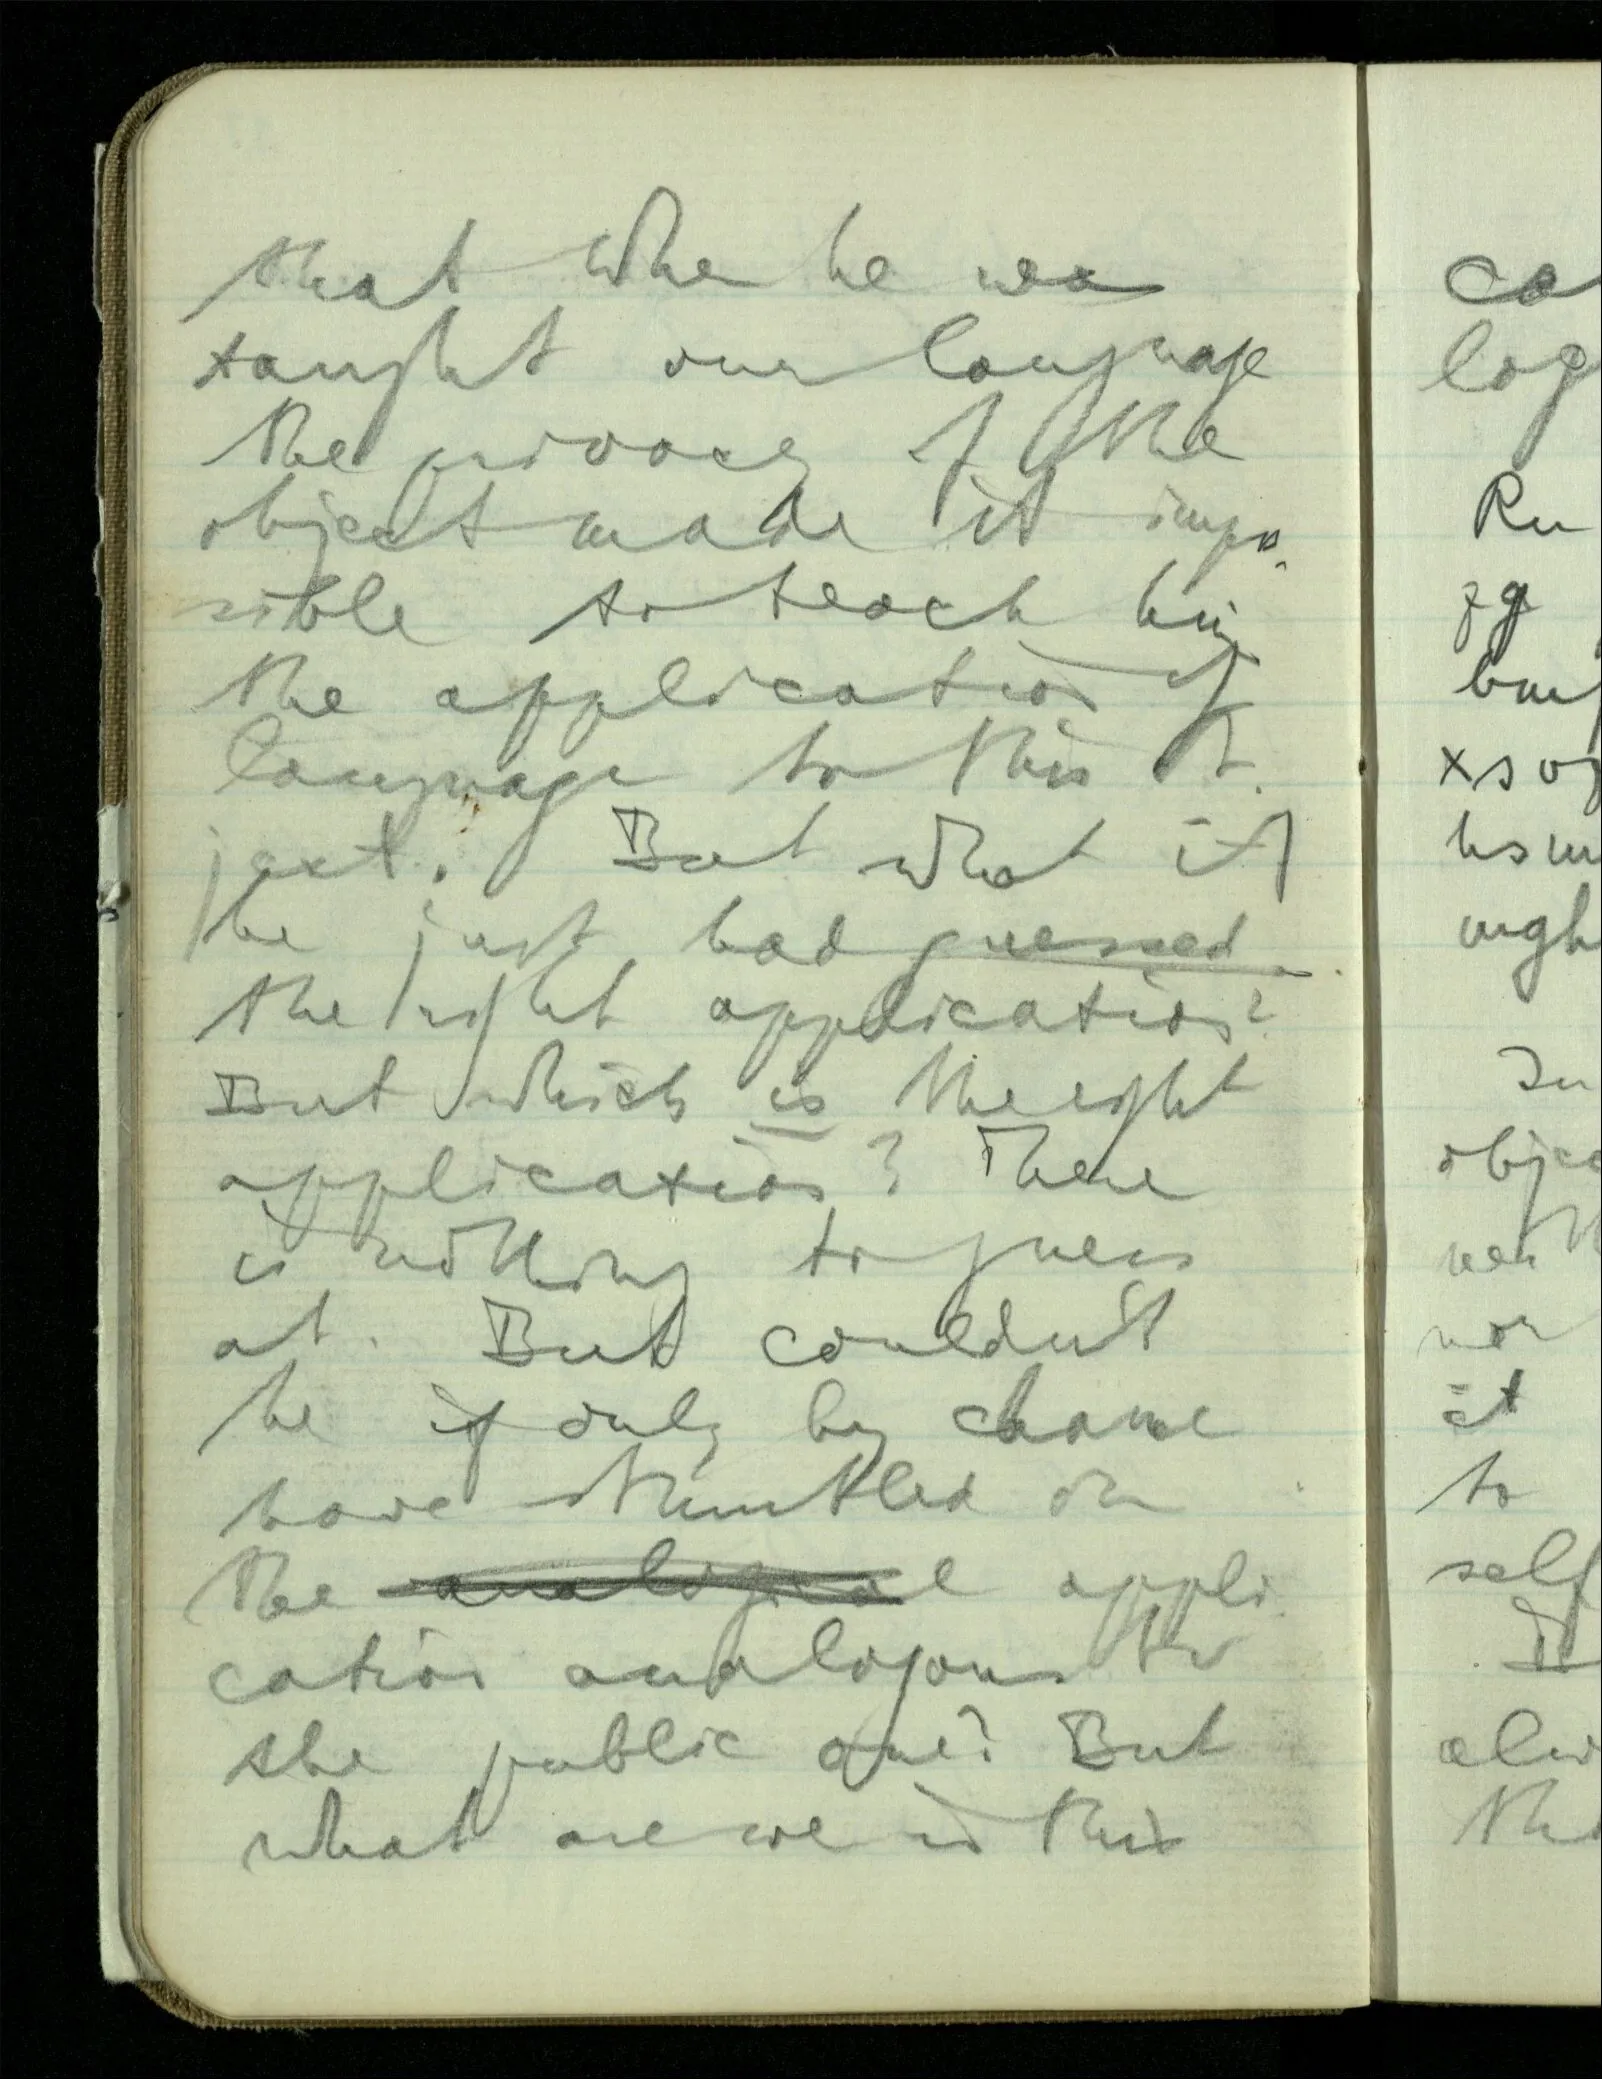 that when he was
taught our language
the privacy of the
object made it impos-
sible to teach him
the application of
language to this ob-
ject. But what if
he just had guessed
the right application?
But which is the right
application? There
is nothing to guess
at. But couldn't
he if only by chance
have stumbled on
the analogical appli-
cation analogous to
the public one? But
what are we in this
ca
log
Ru
zg
xsoz
hsm
wgh
In
objec
nor
it
to
self
alw